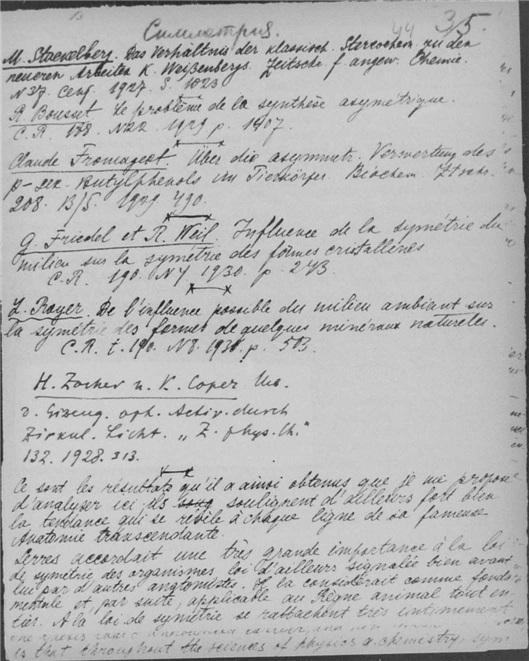 Симметрия. 44 3/5.
M. Stackelberg. Das Verhältnis der klassisch. Stereochem zu den
neueren Arbeiten K. Weißenbergs. Zeitschr. f. angew. Chemie.
N37. 1927. S. 1023
R. Bousset Le problème de la synthèse asymétrique.
C.R. 188. N22. 1929 p. 1407.
Claude Fromageot. Über die asymmetr. Verwertung des
p-sek. Butylphenols im Tierkörper. Biochem. Ztschr.
208. B/5. 1929 490.
G. Friedel et R. Weil. Influence de la symétrie du
milieu sur la symétrie des formes cristallines
C.R. 190. N4 1930. p. 243
L. Royer. De l'influence possible du milieu ambiant sur
la symétrie des formes de quelques minéraux naturels.
C.R. t. 190. N8. 1930. p. 503.
H. Zocher u. K. Coper Üb.
d. Erzeug. opt. Activ. durch
Zirkul. Licht. „Z. phys. Ch."
132. 1928. 313.
Ce sont les résultats qu'il a ainsi obtenus que je me propose
d'analyser ici, ils soulignent d'ailleurs fort bien
la tendance qui se révèle à chaque ligne de sa fameuse
Anatomie transcendante.
Serres accordait une très grande importance à la loi
de symétrie des organismes, loi d'ailleurs signalée bien avant
lui par d'autres anatomistes. Il la considérait comme fonda-
mentale et, par suite, applicable au Règne animal tout en-
tier. A la loi de symétrie se rattachent très intimement
is that throughout the sciences of physics & chemistry, sym